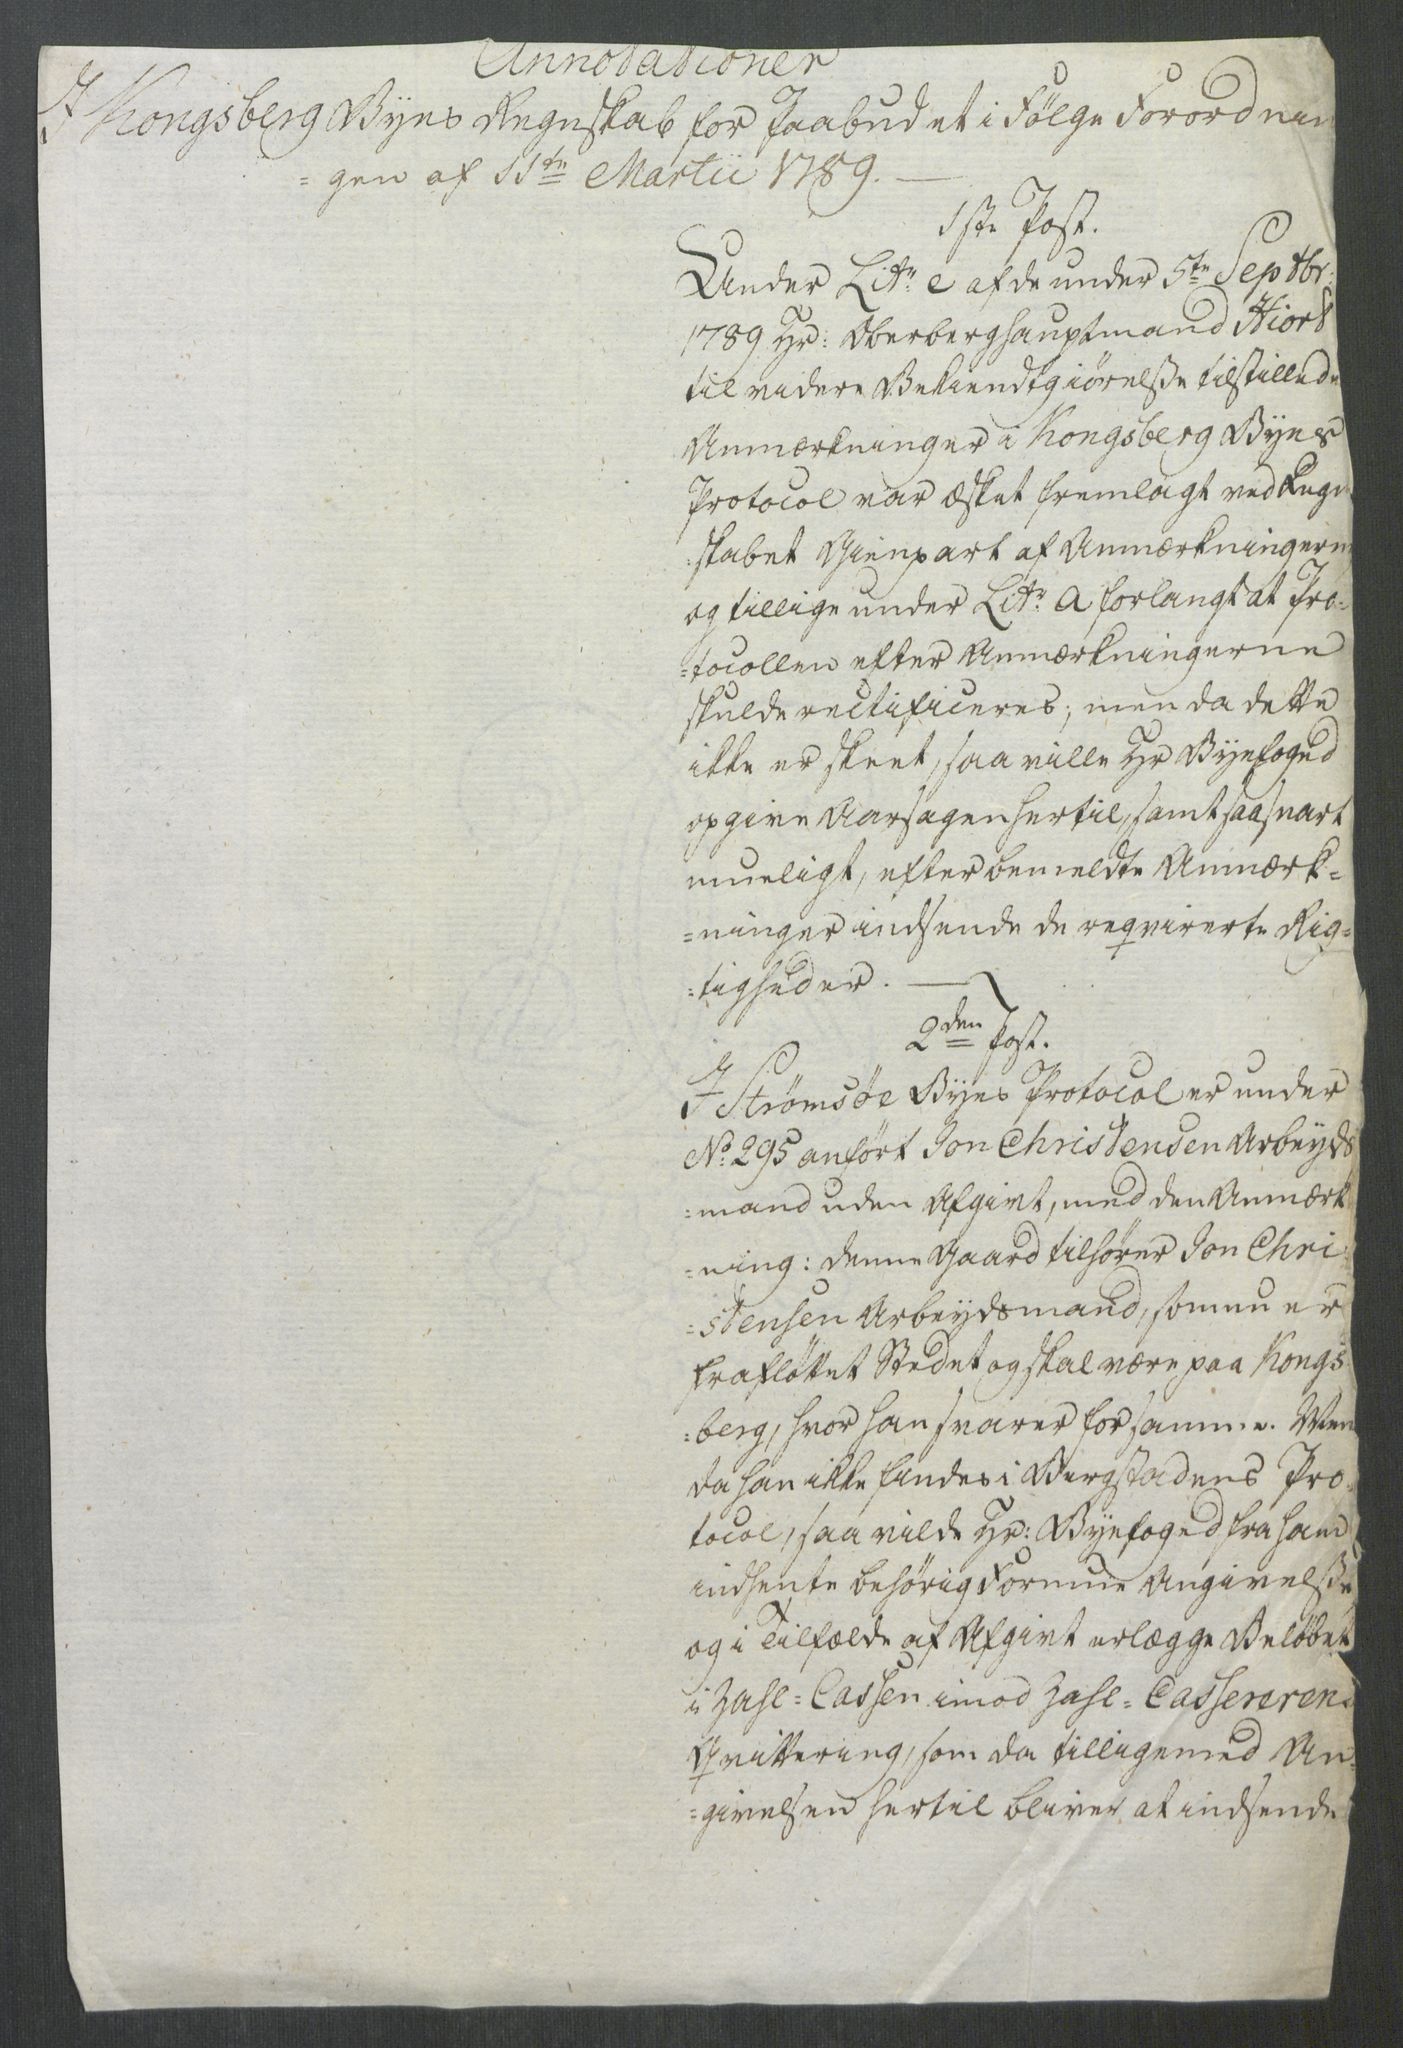 Annotationer
I Kongsberg Byes Regnskab for Paabudet i Følge Forordnin
= gen af 11te Martii 1789. —
1ste Post.
Under Litr: e af de under 5te Septbr:
1789 Hr: Oberberghauptmand Hiort
til videre Bekiendtgiørelsse tilstillede
Anmærkninger i Kongsberg Byes
Protocol var æsket fremlagt ved Regn
skabet Gienpart af Anmærkningerne
og tillige under Litr: a forlangt at Pro=
=tocollen efter Anmærkningerne
skulde rectificeres; men da dette
ikke er skeet, saa ville Hr Byefoged
opgive Aarsagen hertil, samt saasnart
mueligt, efter bemeldte Anmærk=
=ninger indsende de reqvirerte Rig=
=tigheder. —
2den Post.
I Strømsøe Byes Protocol er under
No: 295 anført Jon Christensen Arbeyds
=mand uden Afgivt, med den Anmærk
=ning: denne Gaard tilhører Jon Chri
=stensen Arbeydsmand, som nu er
fraflöttet Stedet og skal være paa Kongs
=berg, hvor han svarer for samme. Men
da han ikke findes i Bergstadens Pro=
tocol, saa vilde Hr: Byefoged fra ham
indhente behørig Formue Angivelsse
og i Tilfælde af Afgivt erlægge Beløbet
i Zahl=Cassen imod Zahl=Cassererens
Qvittering, som da tilligemed An=
=givelsen hertil bliver at indsende